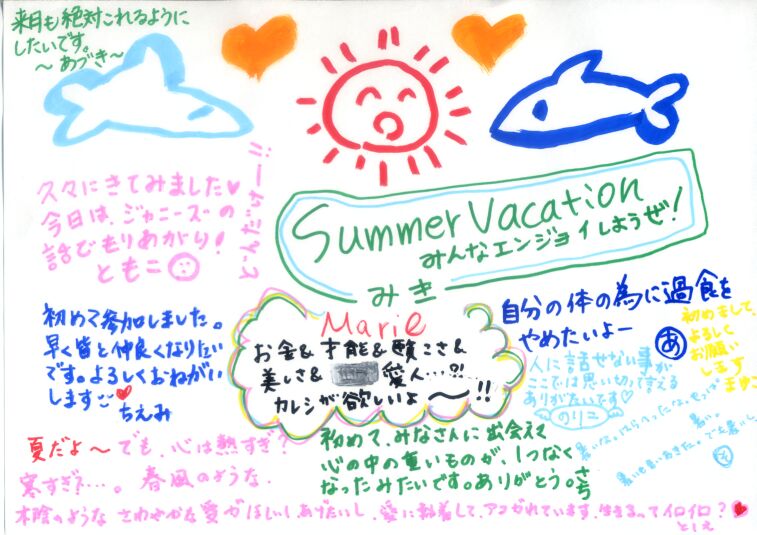 来月も絶対これるように
したいです。
～あづき～
久々にきてみました♥
今日は、ジャニーズの
話でもりあがり！
ともこ
Summer Vacation
みんなエンジョイしようぜ！
みき
初めて参加しました。
早く皆と仲良くなりたい
です。よろしくおねがい
します♥
ちえみ
Marie
お金&才能&賢こさ&
美しさ&
愛人…?!
カレシが欲しいよ～!!
自分の体の為に過食を
やめたいよー
あ
初めまして、
よろしく
お願い
します
まゆこ
人に話せない事が
ここでは思い切って言える
ありがたいです♡
のりこ
初めて、みなさんに出会えて
心の中の重いものが、1つなく
なったみたいです。ありがとう。さち
夏だよ～でも、心は熱すぎ？
寒すぎ？…。春風のような、
木陰のような さわやかな愛がほしいしあげたいし、愛に執着して、アコがれています、生きるってイロイロ？♥
としえ